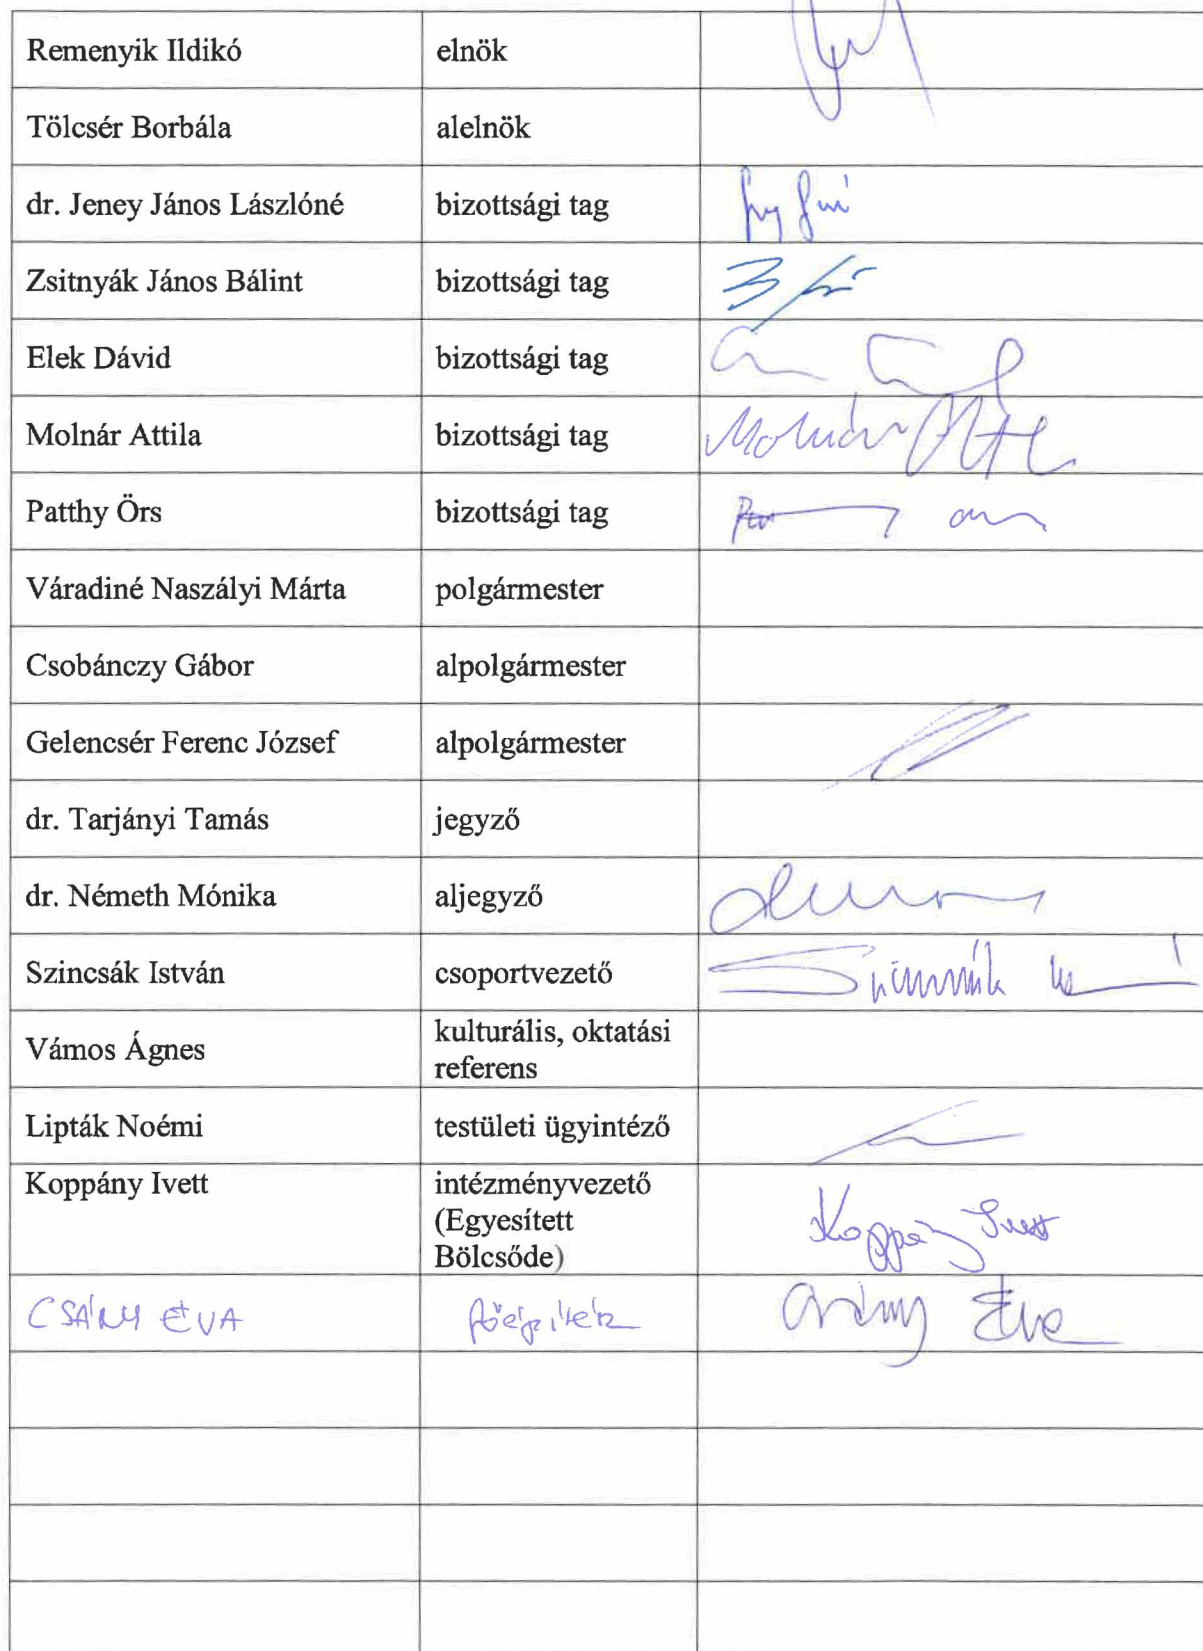 Remenyik Ildikó elnök
Tölcsér Borbála alelnök
dr. Jeney János Lászlóné bizottsági tag
Zsitnyák János Bálint bizottsági tag
Elek Dávid bizottsági tag
Molnár Attila bizottsági tag Molnár
Patthy Örs bizottsági tag
Váradiné Naszályi Márta polgármester
Csobánczy Gábor alpolgármester
Gelencsér Ferenc József alpolgármester
dr. Tarjányi Tamás jegyző
dr. Németh Mónika aljegyző
Szincsák István csoportvezető
Vámos Ágnes kulturális, oktatási
referens
Lipták Noémi testületi ügyintéző
Koppány Ivett intézményvezető
(Egyesített Koppány Ivett
Bölcsőde)
CSÁNY ÉVA főépítész Csány Éva